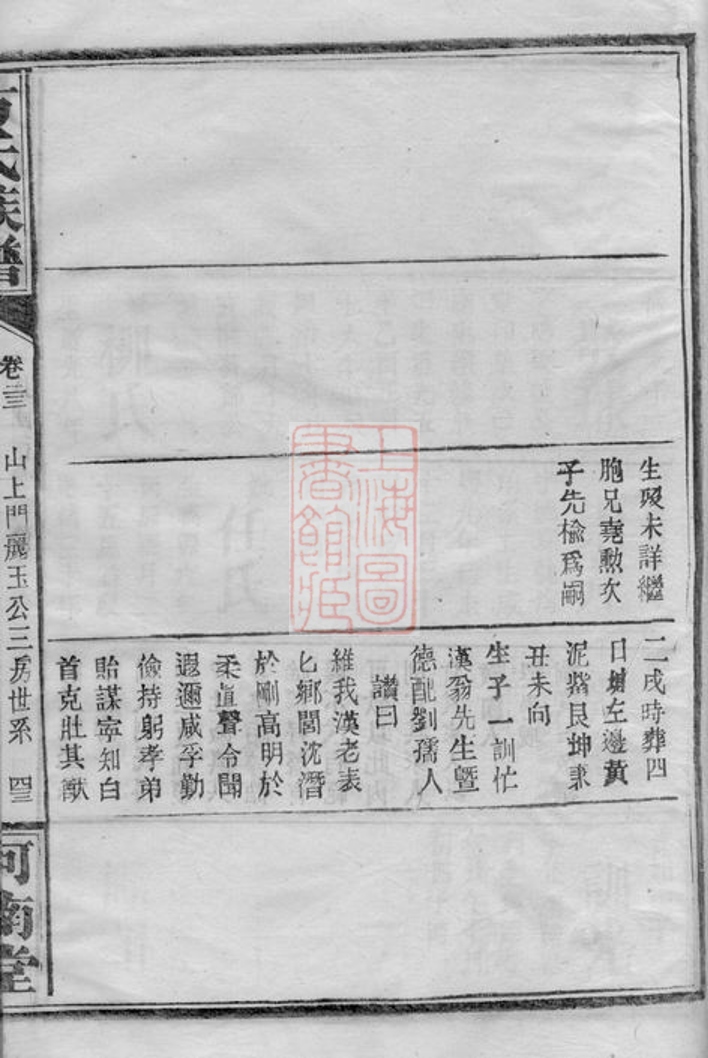 生歿未詳繼
胞兄堯勲次
子先楡爲嗣
二戌時葬四
日塘左邊黃
泥㘭艮坤兼
丑未向
生子一訓忙
漢翁先生曁
德配劉孺人
讃曰
維我漢老表
匕鄉閭沈潛
於剛高明於
柔眞聲令聞
遐邇咸孚勤
儉持躬孝弟
貽謀寧知白
首克壯其猷
氏族譜
卷三
山上門麗玉公三房世系
河南堂
上海圖
書館藏